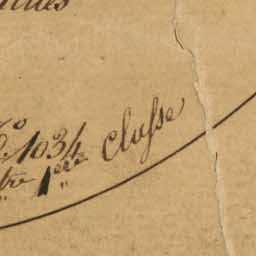 No 1034
tre 1ère Classe